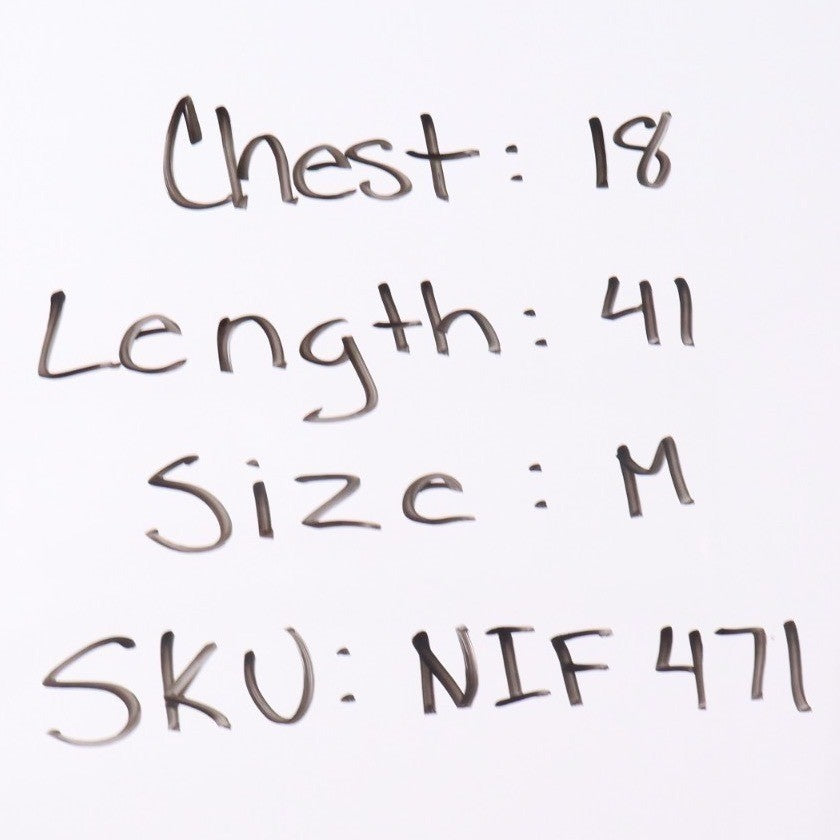 Chest: 18
Length: 41
Size: M
SKU: NIF 471